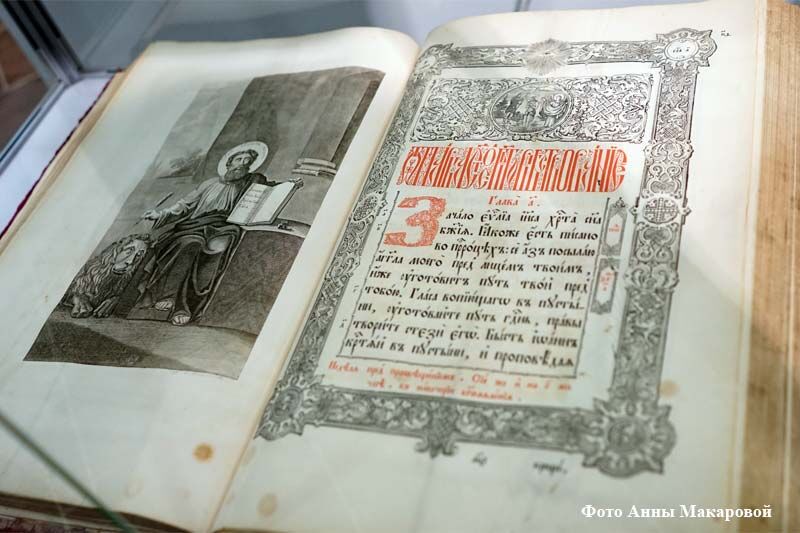 Глава а҃.
Зачало еѵⷢ҇лїа і҆и҃са хрⷭ҇та̀ сн҃а
бж҃їѧ. Ꙗкоже есть писано
во пррⷪ҇цѣхъ: се азъ посылаю
аг҃гла моего пред лицемъ твоимъ,
иже оуготовитъ пꙋть твой пред
тобою. Гласъ вопїющагѡ въ пꙋсты
ни, оуготовайте пꙋть гдⷭ҇ень, правы
творите стези егѡ. Бысть іѡаннъ
крⷭ҇тѧй въ пꙋстыни, и проповѣдаѧ
Недѣлѧ пред просвѣщенїемъ.
Фото Анны Макаровой